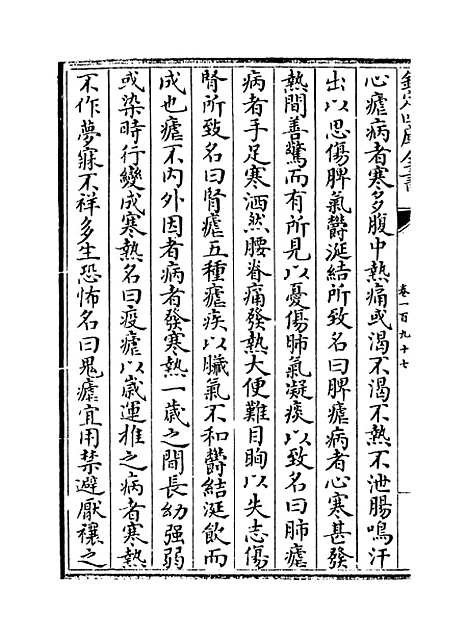 欽定四庫全書
卷一百九十七
心瘧病者寒多腹中熱痛或渴不渴不熱不泄腸鳴汗
出以思傷脾氣鬱涎結所致名曰脾瘧病者心寒甚發
熱間善驚而有所見以憂傷肺氣凝痰以致名曰肺瘧
病者手足寒洒然腰脊痛發熱大便難目眴以失志傷
腎所致名曰腎瘧五種瘧疾以臟氣不和鬱結涎飲而
成也瘧不內外因者病者發寒熱一歲之間長幼强弱
或染時行變成寒熱名曰疫瘧以歲運推之病者寒熱
不作夢寐不祥多生恐怖名曰鬼瘧宜用禁避厭禳之